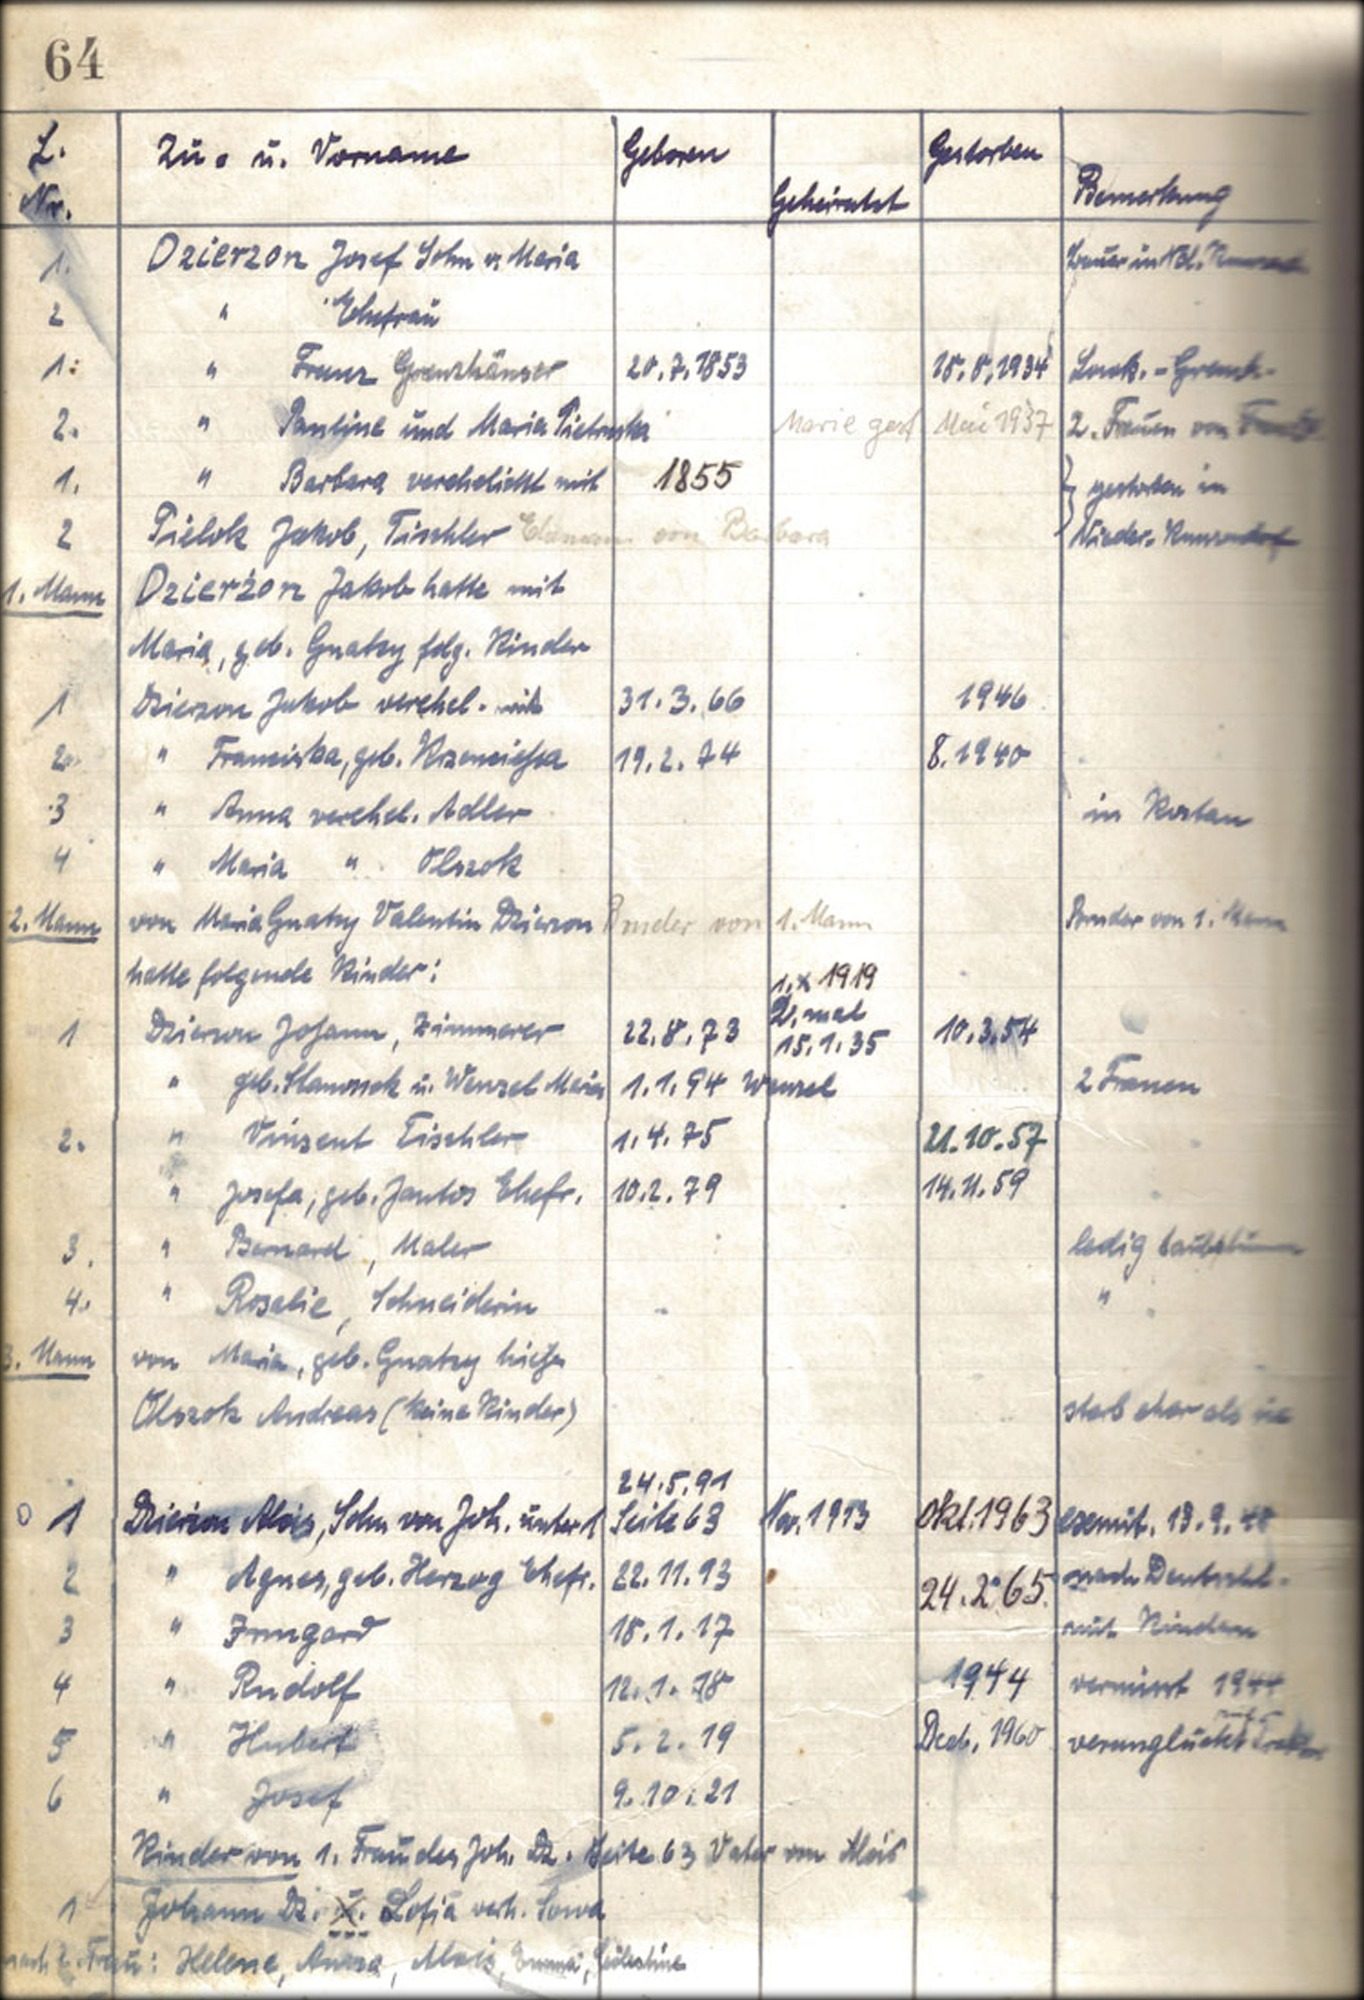 64
L. Nr. Zu- u. Vorname Geboren Geheiratet Gestorben Bemerkung
1. Dzierzon Josef Sohn v. Maria
2 " Ehefrau
1. " Franz Grenzhäuser 20.7.1853 18.8.1934
2. " Pauline und Maria Pietruska Marie gest Mai 1937 2. Frauen von
1. " Barbara verehelicht mit 1855 gestorben in
2 Pielok Jakob, Tischler Ehemann von Barbara Nieder-Kunzendorf
1. Mann Dzierżon Jakob hatte mit
Maria, geb. Gnatzy folg. Kinder
1 Dzierzon Jakob verehel. mit 31.3.66 1946
2. " Franciska, geb. 19.2.74 8.1940
3 " Anna verehel. Adler in Kostau
4 " Maria " Olszok
2. Mann von Maria Gnatzy Valentin Dzierzon Bruder von 1. Mann Bruder von 1. Mann
hatte folgende Kinder: 1. x 1919
1 Dzierzon Johann, Zimmerer 22.8.73 2. mal 15.1.35 10.3.54
" geb. u. Wenzel Maria 1.1.94 Wenzel 2 Frauen
2. " Vinzent Tischler 1.4.75 21.10.57
" Josefa, geb. Jantos Ehefr. 10.2.79 14.11.59
3. " Bernard, Maler ledig taubstumm
4. " Rosalie, Schneiderin "
3. Mann von Maria, geb. Gnatzy hieß
Olszok Andreas (keine Kinder) starb eher als sie
24.5.91
1 Dzierzon Alois, Sohn von Joh. unter 1 Seite 63 Nov. 1913 Okt. 1963 exmit. 13.9.
2 " Agnes, geb. Herzog Ehefr. 22.11.93 24.2.65. nach Deutschl.
3 " Irmgard 18.1.17 mit Kindern
4 " Rudolf 12.1.18 1944 vermisst 1944
5 " Hubert 5.2.19 Dez. 1960 verunglückt
6 " Josef 9.10.21
Kinder von 1. Frau des Joh. Dz. Seite 63 Vater von Alois
1 Johann Dz. u. Sofia verh. Sowa
nach 2. Frau: Helene, Anna, Alois, Emma, Cölestine